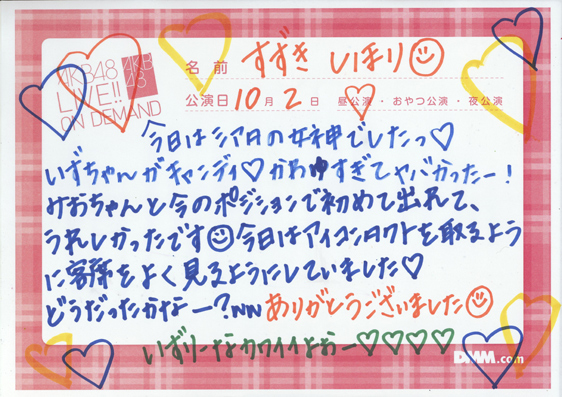 AKB48
LIVE!!
ON DEMAND
AKB
48
名前 すずき しほり
公演日 10月2日 昼公演・おやつ公演・夜公演
今日はシアロの女神でしたっ♡
いずちゃんがキャンディ♡かわゆすぎてヤバかったー!
みおちゃんと今のポジションで初めて出れて、
うれしかったです☺今日はアイコンタクトを取るよう
に客席をよく見るようにしていました♡
どうだったかなー?ww ありがとうございました☺
いずりーなカワイイよぉー♡♡♡♡
DMM.com